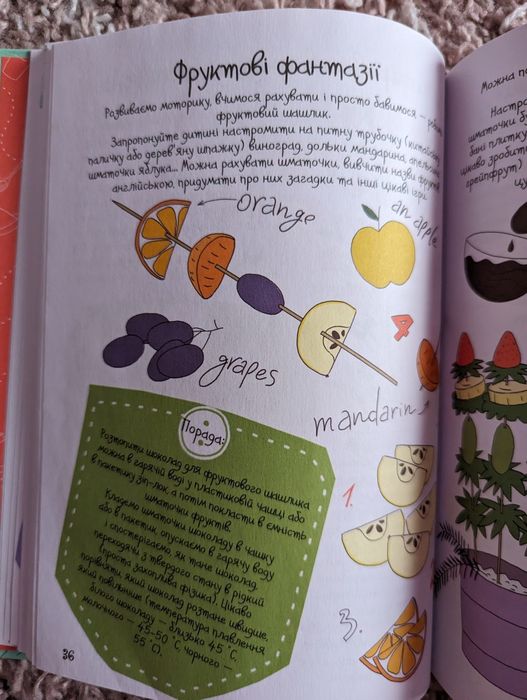 Фруктові фантазії
Розвиваємо моторику, вчимося рахувати і просто бавимося —
фруктовий шашлик.
Запропонуйте дитині настромити на питну трубочку (китайську
паличку або дерев'яну шпажку) виноград, дольки мандарина, апельсина,
шматочки яблука... Можна рахувати шматочки, вивчити назви фруктів
англійською, придумати про них загадки та інші цікаві ігри.
orange
an apple
4
grapes
mandarin
Порада:
Розтопити шоколад для фруктового шашлика
можна в гарячій воді у пластиковій чашці або
в пакетику зіп-лок, а потім покласти в ємність
шматочки фруктів.
Кладемо шматочки шоколаду в чашку
або в пакетик, опускаємо в гарячу воду
і спостерігаємо, як тане шоколад,
переходячи з твердого стану в рідкий
(проста захоплива фізика). Цікаво
порівняти, який шоколад розтане швидше,
який повільніше (температура плавлення
білого шоколаду — близько 45 °C,
молочного — 45-50 °C, чорного —
55 °C).
1.
3.
36
Можна
Настр
шматочки б
бані плитку
цікаво зробити
грейпфрут)